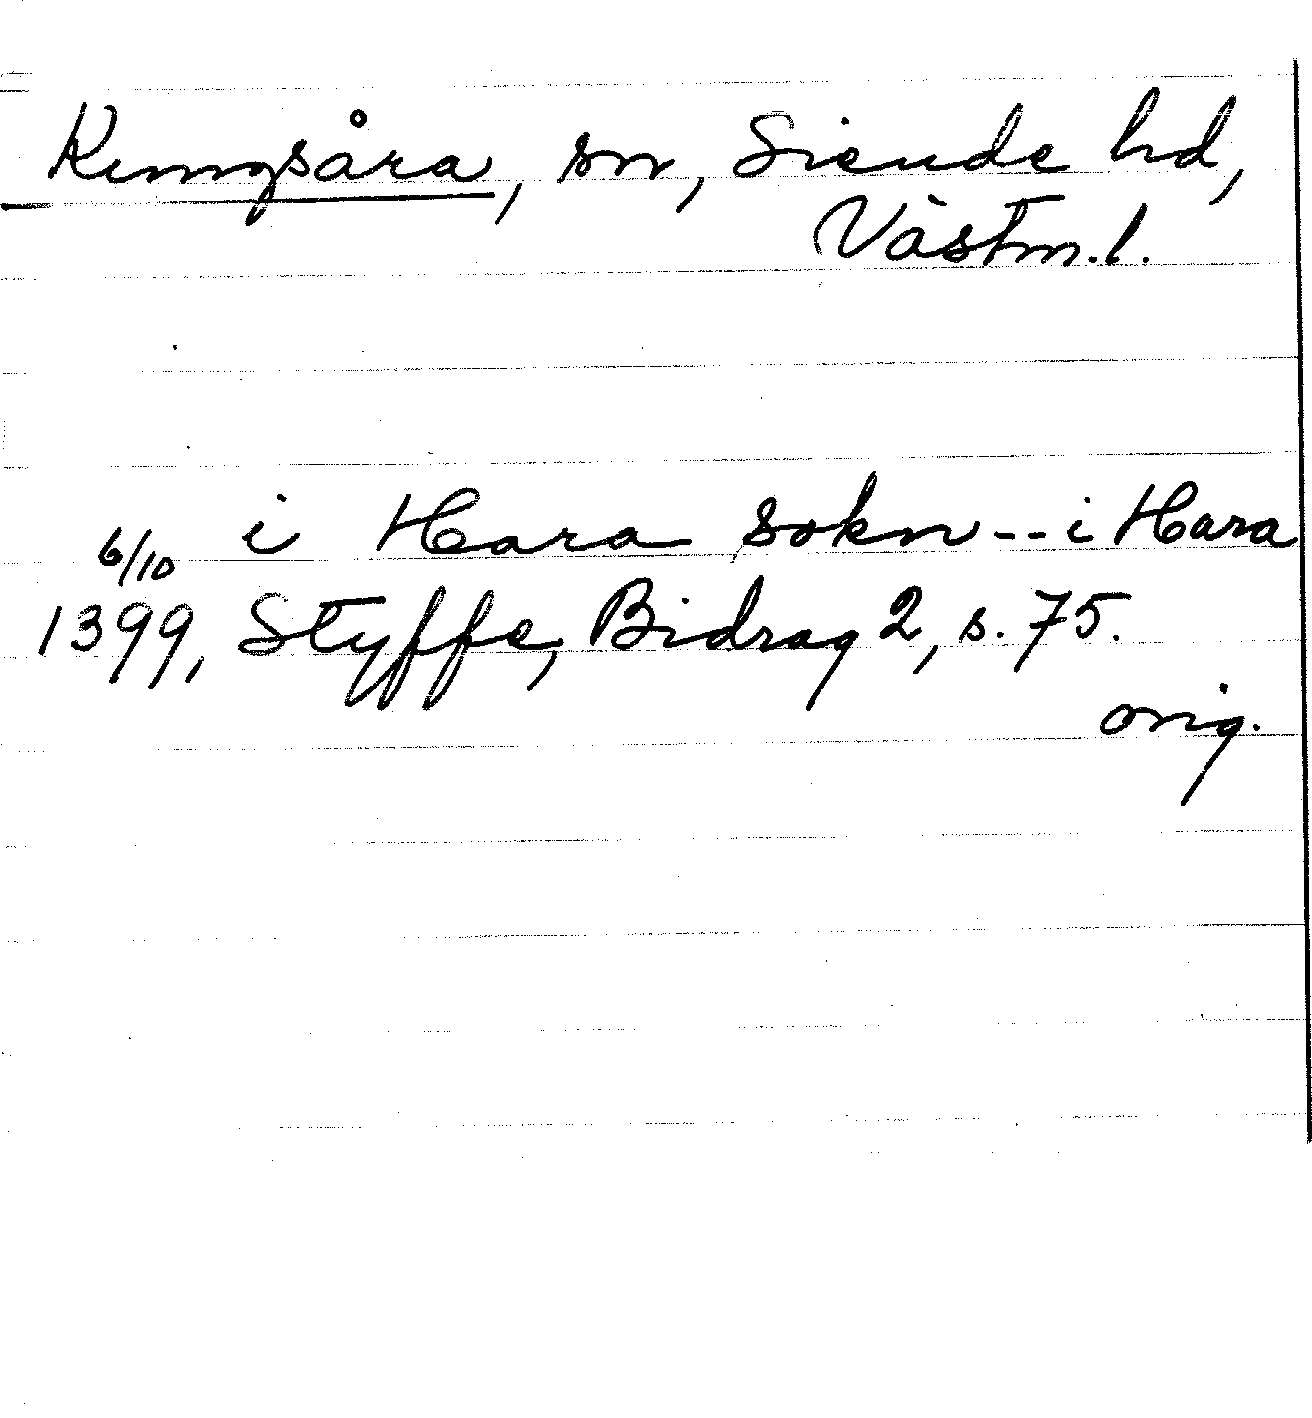 Kungsåra, sn, Siende hd,
Västm.l.
i Hara sokn -- i Hara
6/10
1399, Styffe, Bidrag 2, s. 75.
orig.